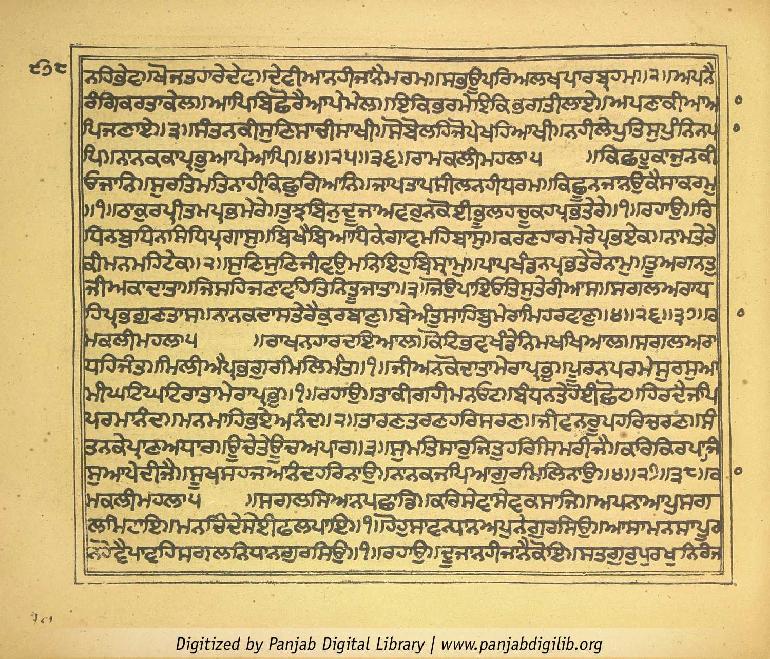 ੯੭੮
ਨਹਿਭੇਟਾ।ਖੋਜਤਹਾਰੇਦੇਵਾ॥ਦੇਵੀਆਨਹੀਜਾਨੈਮਰਮਾ॥ਸਭਊਪਰਿਅਲਖਪਾਰਬ੍ਰਹਮਾ॥੨॥ਅਪਨੈ
ਰੰਗਿਕਰਤਾਕੇਲਾ॥ਆਪਿਬਿਛੋਰੈਆਪੇਮੇਲਾ॥ਇਕਿਭਰਮੇਇਕਿਭਗਤੀਲਾਏ॥ਅਪਣਾਕੀਆਆ
ਪਿਜਣਾਏ॥੩॥ਸੰਤਨਕੀਸੁਣਿਸਾਚੀਸਾਖੀ॥ਸੋਬੋਲਹਿਜੋਪੇਖਹਿਆਖੀ॥ਨਹੀਲੇਪੁਤਿਸੁਪੁੰਨਿਨਪਾ
ਪਿ॥ਨਾਨਕਕਾਪ੍ਰਭੁਆਪੇਆਪਿ॥੪॥੨੫॥੩੬॥ਰਾਮਕਲੀਮਹਲਾ੫ ॥ਕਿਛਹੂਕਾਜੁਨਕੀ
ਓਜਾਨਿ॥ਸੁਰਤਿਮਤਿਨਾਹੀਕਿਛੁਗਿਆਨਿ॥ਜਾਪਤਾਪਸੀਲਨਹੀਧਰਮ॥ਕਿਛੂਨਜਾਨਉਕੈਸਾਕਰਮ
॥੧॥ਠਾਕੁਰਪ੍ਰੀਤਮਪ੍ਰਭਮੇਰੇ॥ਤੁਝਬਿਨੁਦੂਜਾਅਵਰੁਨਕੋਈਭੂਲਹਚੂਕਹਪ੍ਰਭਤੇਰੇ॥੧॥ਰਹਾਉ॥ਰਿ
ਧਿਨਬੁਧਿਨਸਿਧਿਪ੍ਰਗਾਸੁ॥ਬਿਖੈਬਿਆਧਿਕੇਗਾਵਮਹਿਬਾਸੁ॥ਕਰਣਹਾਰਮੇਰੇਪ੍ਰਭਏਕ॥ਨਾਮਤੇਰੇ
ਕੀਮਨਮਹਿਟੇਕ॥੨॥ਸੁਣਿਸੁਣਿਜੀਵਉਮਨਿਇਹੁਬਿਸ੍ਰਾਮੁ॥ਪਾਪਖੰਡਨਪ੍ਰਭਤੇਰੋਨਾਮੁ॥ਤੂਅਗਨਤੁ
ਜੀਅਕਾਦਾਤਾ॥ਜਿਸਹਿਜਣਾਵਹਿਤਿਨਿਤੂਜਾਤਾ॥੩॥ਜੋਉਪਾਇਓਤਿਸੁਤੇਰੀਆਸ॥ਸਗਲਅਰਾਧ
ਹਿਪ੍ਰਭਗੁਣਤਾਸ॥ਨਾਨਕਦਾਸਤੇਰੈਕੁਰਬਾਣੁ॥ਬੇਅੰਤਸਾਹਿਬੁਮੇਰਾਮਿਹਰਵਾਣੁ॥੪॥੨੬॥੩੭॥ਰਾ
ਮਕਲੀਮਹਲਾ੫ ॥ਰਾਖਨਹਾਰਦਇਆਲ॥ਕੋਟਿਭਵਖੰਡੇਨਿਮਖਖਿਆਲ॥ਸਗਲਅਰਾ
ਧਹਿਜੰਤ॥ਮਿਲੀਐਪ੍ਰਭਗੁਰਮਿਲਿਮੰਤ॥੧॥ਜੀਅਨਕੋਦਾਤਾਮੇਰਾਪ੍ਰਭੁ॥ਪੂਰਨਪਰਮੇਸੁਰਸੁਆ
ਮੀਘਟਿਘਟਿਰਾਤਾਮੇਰਾਪ੍ਰਭੁ॥੧॥ਰਹਾਉ॥ਤਾਕੀਗਹੀਮਨਓਟ॥ਬੰਧਨਤੇਹੋਈਛੋਟ॥ਹਿਰਦੈਜਪਿ
ਪਰਮਾਨੰਦ॥ਮਨਮਾਹਿਭਏਅਨੰਦ॥੨॥ਤਾਰਣਤਰਣਹਰਿਸਰਣ॥ਜੀਵਨਰੂਪਹਰਿਚਰਣ॥ਸੰ
ਤਨਕੇਪ੍ਰਾਣਅਧਾਰ॥ਊਚੇਤੇਊਚਅਪਾਰ॥੩॥ਸੁਮਤਿਸਾਰੁਜਿਤੁਹਰਿਸਿਮਰੀਜੈ॥ਕਰਿਕਿਰਪਾਜਿ
ਸੁਆਪੇਦੀਜੈ॥ਸੂਖਸਹਜਆਨੰਦਹਰਿਨਾਉ॥ਨਾਨਕਜਪਿਆਗੁਰਮਿਲਿਨਾਉ॥੪॥੨੭॥੩੮॥ਰਾ
ਮਕਲੀਮਹਲਾ੫ ॥ਸਗਲਸਿਆਨਪਛਾਡਿ॥ਕਰਿਸੇਵਾਸੇਵਕਸਾਜਿ॥ਅਪਨਾਆਪੁਸਗ
ਲਮਿਟਾਇ॥ਮਨਚਿੰਦੇਸੇਈਫਲਪਾਇ॥੧॥ਹੋਹੁਸਾਵਧਾਨਅਪੁਨੇਗੁਰਸਿਉ॥ਆਸਾਮਨਸਾਪੂਰ
ਨਹੋਵੈਪਾਵਹਿਸਗਲਨਿਧਾਨਗੁਰਸਿਉ॥੧॥ਰਹਾਉ॥ਦੂਜਾਨਹੀਜਾਨੈਕੋਇ॥ਸਤਗੁਰੁਪੁਰਖੁਨਿਰੰਜ
Digitized by Panjab Digital Library | www.panjabdigilib.org